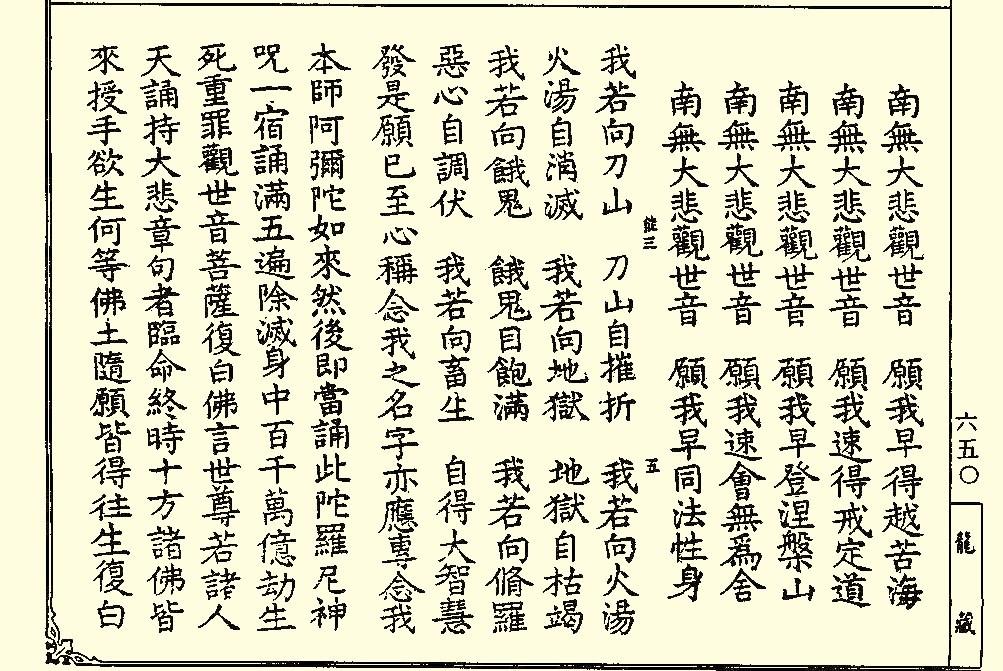 六五〇
龍藏
南無大悲觀世音　願我早得越苦海
南無大悲觀世音　願我速得戒定道
南無大悲觀世音　願我早登涅槃山
南無大悲觀世音　願我速會無爲舍
南無大悲觀世音　願我早同法性身
三
五
我若向刀山　刀山自摧折　我若向火湯
火湯自消滅　我若向地獄　地獄自枯竭
我若向餓鬼　餓鬼自飽滿　我若向脩羅
惡心自調伏　我若向畜生　自得大智慧
發是願已至心稱念我之名字亦應專念我
本師阿彌陀如來然後即當誦此陀羅尼神
呪一宿誦滿五遍除滅身中百千萬億劫生
死重罪觀世音菩薩復白佛言世尊若諸人
天誦持大悲章句者臨命終時十方諸佛皆
來授手欲生何等佛土隨願皆得往生復白